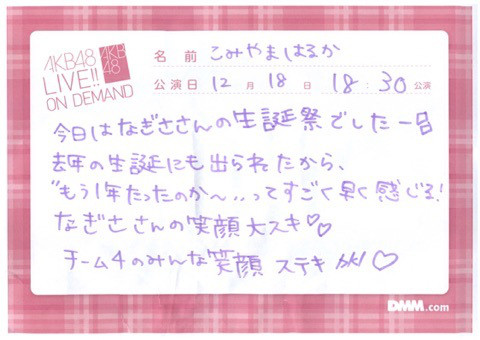 AKB48
LIVE!!
ON DEMAND
AKB
48
名前 こみやまはるか
公演日 12月18日 18:30公演
今日はなぎささんの生誕祭でした
去年の生誕にも出られたから、
"もう1年たったのか〜,,ってすごく早く感じる!
なぎささんの笑顔大スキ♡♡
チーム4のみんな笑顔 ステキ ♡
DMM.com